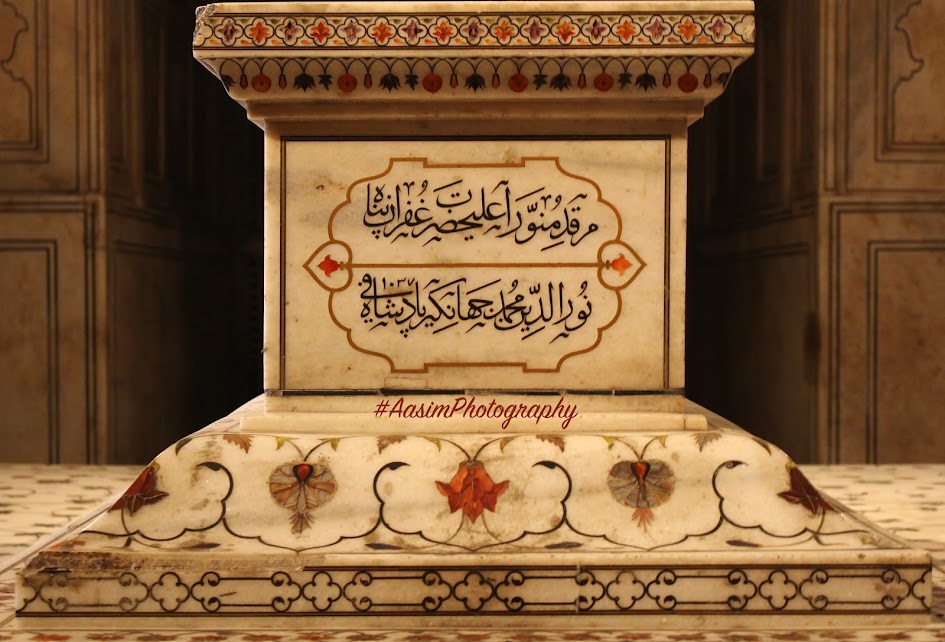 مرقد منوّر اعلیحضرت غُفران پناه
نُورالدّین محمد جهانگیر پادشاه فی ۱۰۳۷
#AasimPhotography